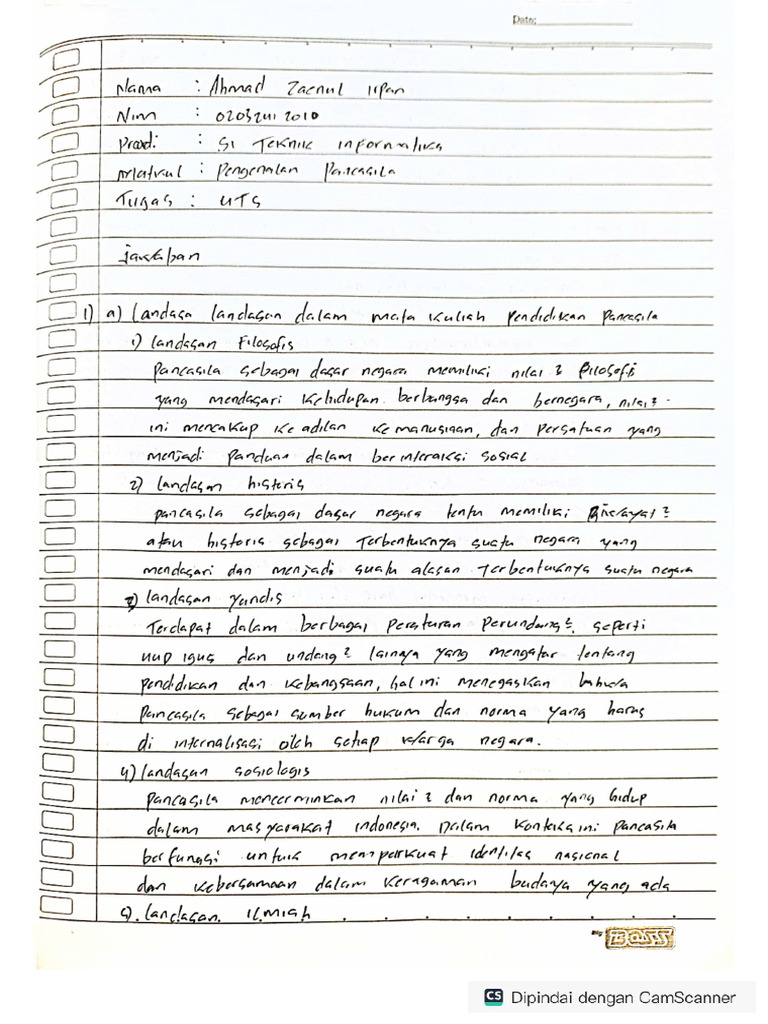 Date:
Nama : Ahmad Zaenul Irpan
Nim :
Prodi : S1 Teknik informatika
Matkul : Pengenalan Pancasila
Tugas : UTS
jawaban
1) a) Landasa landasan dalam mata kuliah pendidikan pancasila
1) landasan Filosofis
pancasila sebagai dasar negara memiliki nilai2 filosofis
yang mendasari kehidupan berbangsa dan bernegara, nilai2
ini mencakup keadilan kemanusiaan, dan persatuan yang
menjadi panduan dalam berinteraksi sosial
2) landasan historis
pancasila sebagai dasar negara tentu memiliki riwayat2
atau historis sebagai terbentuknya suatu negara yang
mendasari dan menjadi suatu alasan terbentuknya suatu negara
3) landasan yuridis
Terdapat dalam berbagai peraturan perundang2. seperti
dan undang2 lainya yang mengatur tentang
pendidikan dan kebangsaan, hal ini menegaskan bahwa
pancasila sebagai sumber hukum dan norma yang harus
di internalisasi oleh setiap warga negara.
4) landasan sosiologis
pancasila mencerminkan nilai2 dan norma yang hidup
dalam masyarakat indonesia. Dalam konteks ini pancasila
berfungsi untuk memperkuat identitas nasional
dan kebersamaan dalam keragaman budaya yang ada
5). landasan Ilmiah
BOSS
CS Dipindai dengan CamScanner